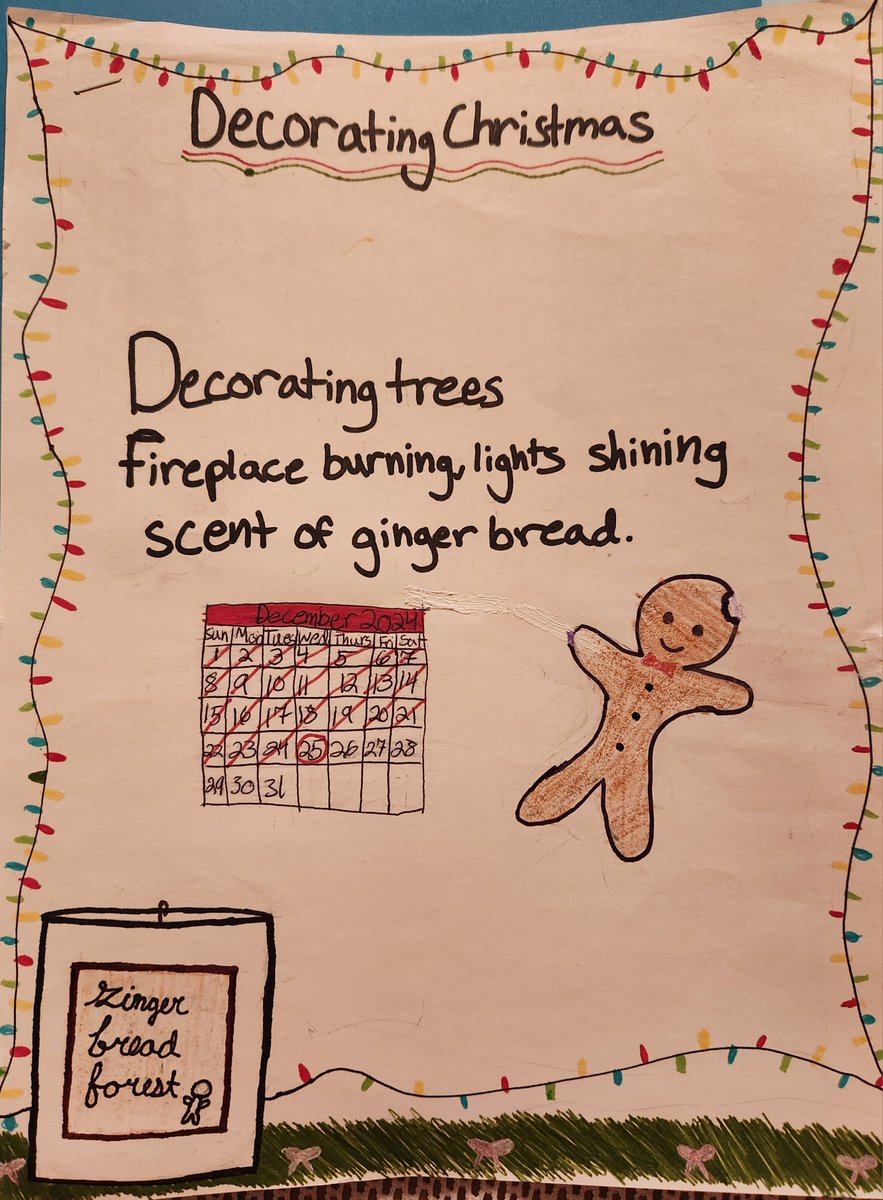 Decorating Christmas
Decorating trees
fireplace burning, lights shining
scent of ginger bread.
December 2024
Sun Mon Tues Wed Thurs Fri Sat
1 2 3 4 5 6 7
8 9 10 11 12 13 14
15 16 17 18 19 20 21
22 23 24 25 26 27 28
29 30 31
Ginger
bread
forest